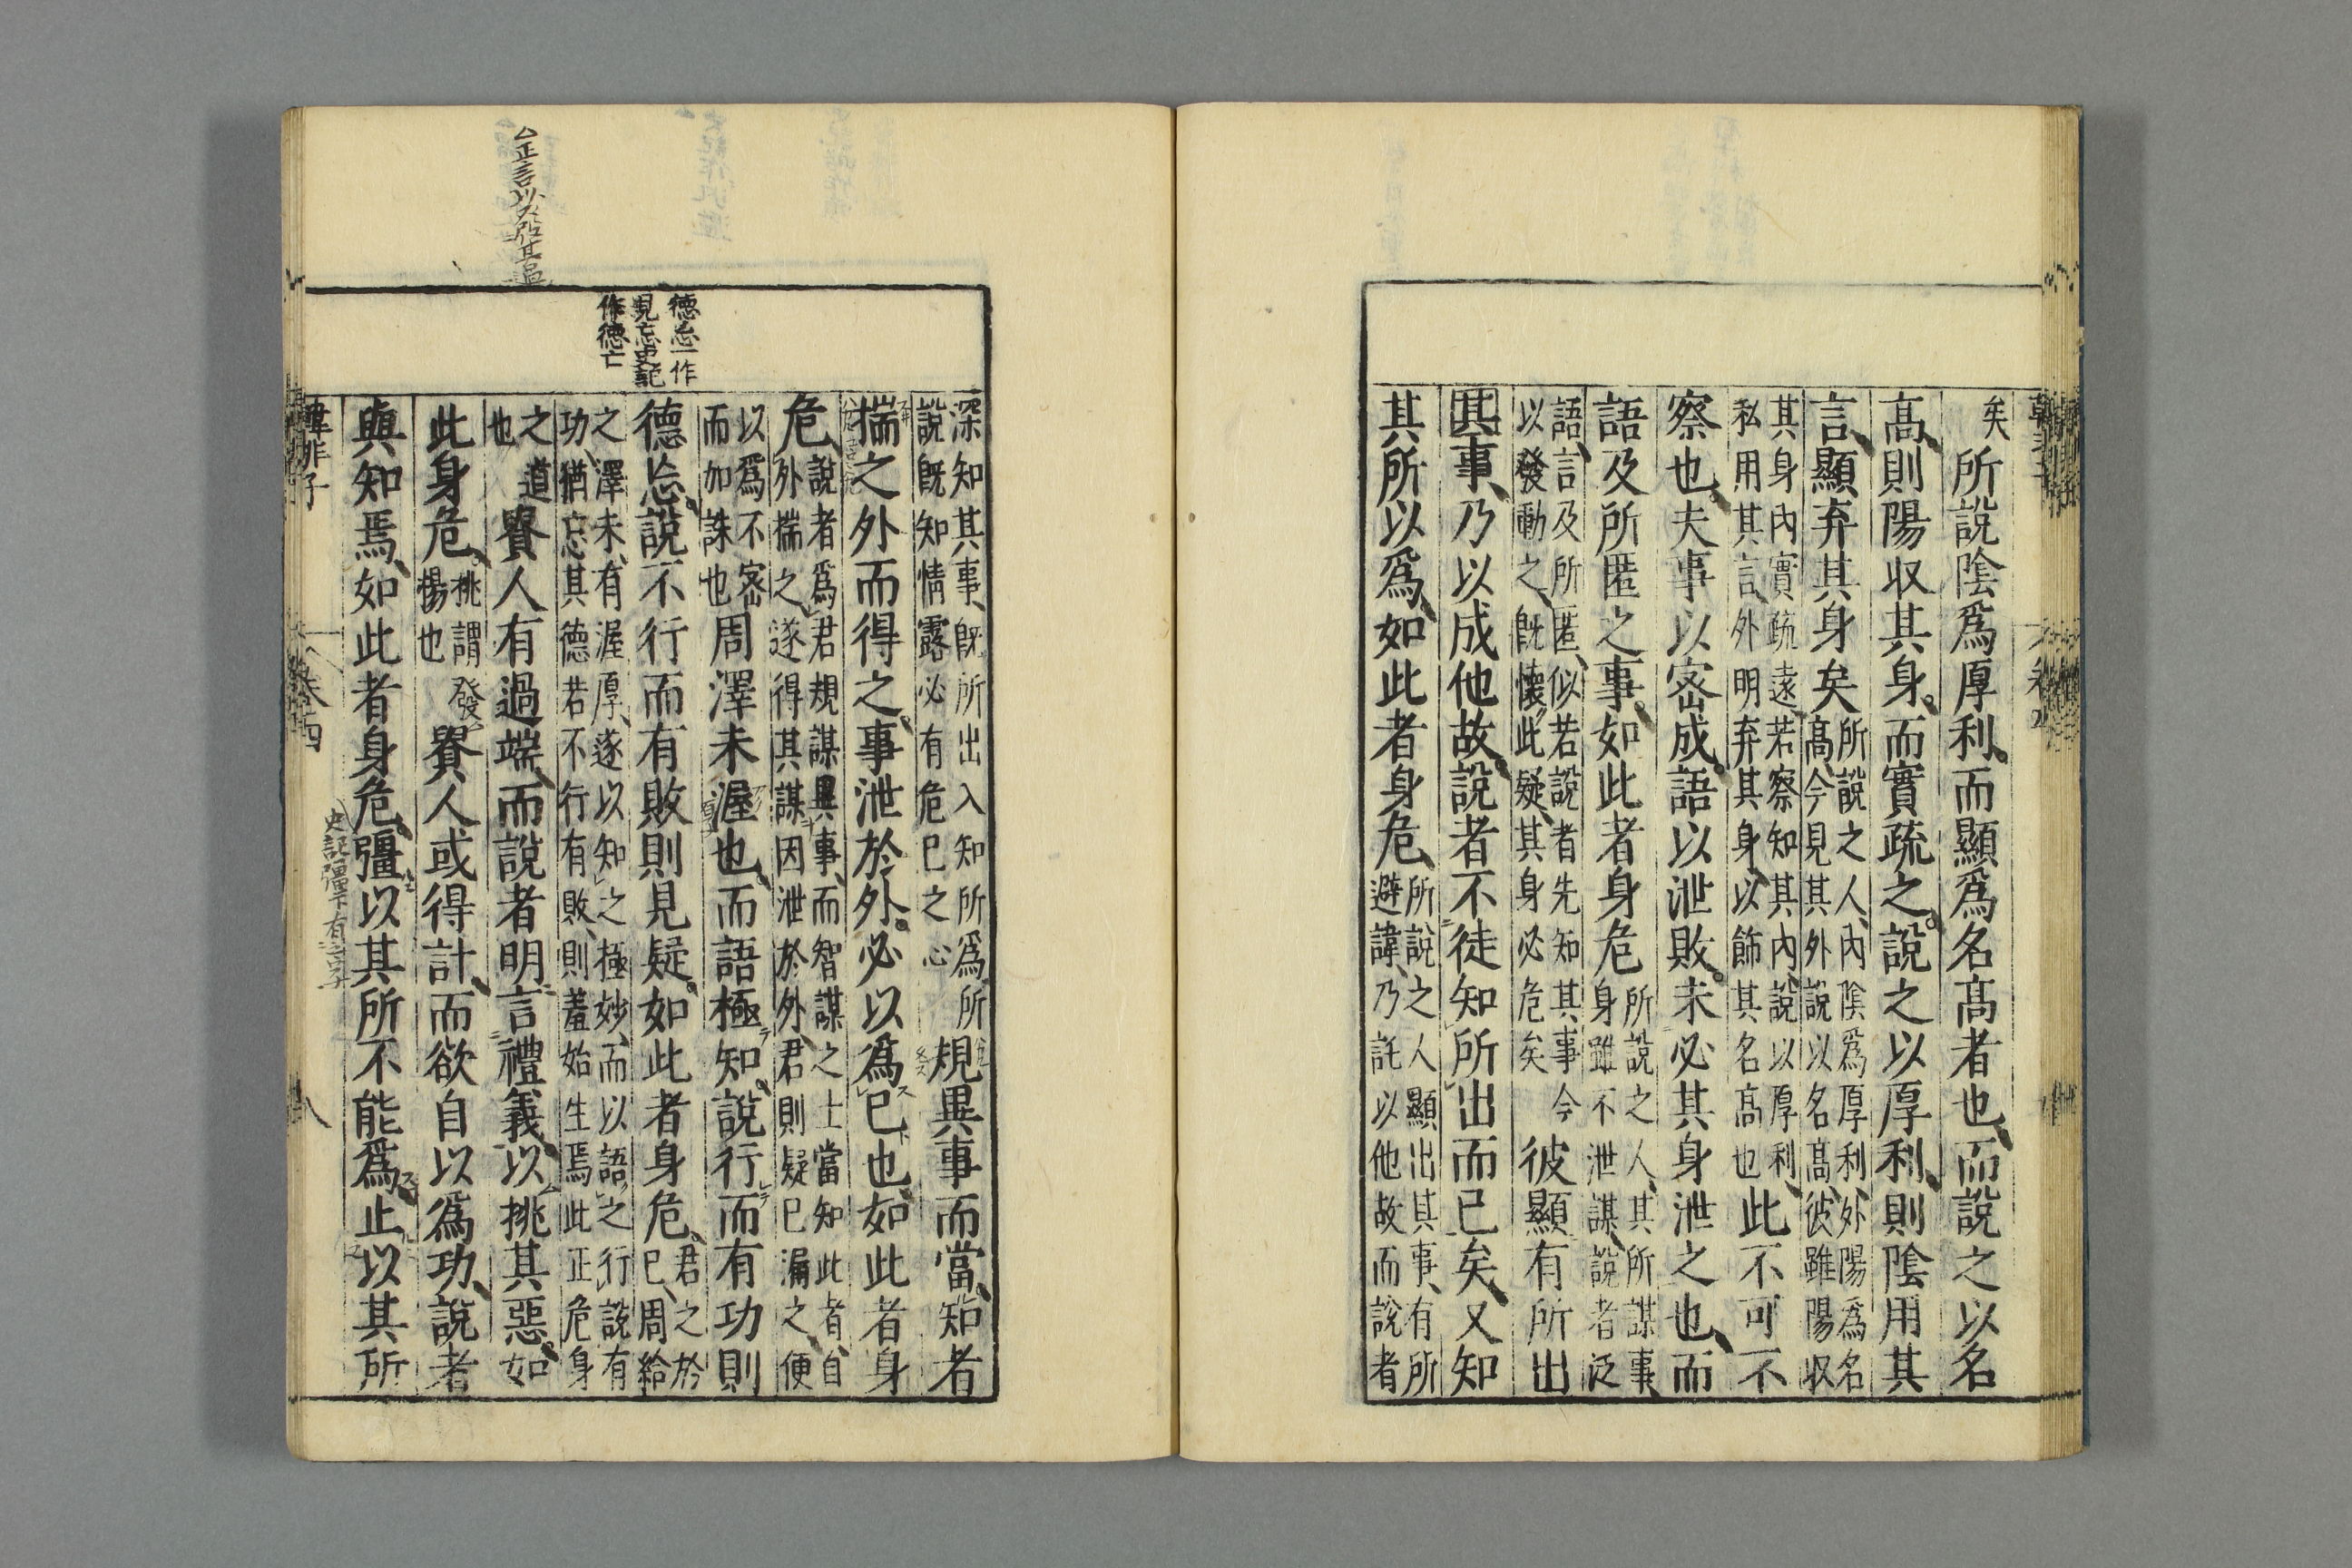 矣所說陰爲厚利而顯爲名髙者也而說之以名
髙則陽収其身而實疏之說之以厚利則陰用其
言顯弃其身矣所說之人內陰爲厚利外陽爲名
髙今見其外說以名髙彼雖陽収
其身內實疏遠若察知其內說以厚利
私用其言外明弃其身以飾其名髙也此不可不
察也夫事以宻成語以泄敗未必其身泄之也而
語及所匿之事如此者身危所說之人其所謀事
身雖不泄謀說者泛
語言及所匿似若說者先知其事今
以發動之旣懷此疑其身必危矣彼顯有所出
其事乃以成他故說者不徒知所出而已矣又知
其所以爲如此者身危所說之人顯出其事有所
避諱乃託以他故而說者
深知其事旣所出入知所爲所
說旣知情露必有危已之心規異事而當知者
揣之外而得之事泄於外必以爲已也如此者身
危說者爲君規謀異事而智謀之士當知此者自
外揣之遂得其謀因泄於外君則疑已漏之便
以爲不宻
而加誅也周澤未渥也而語極知說行而有功則
德忘說不行而有敗則見疑如此者身危君之於
已周給
之澤未有渥厚遂以知之極妙而以語之行說有
功猶忘其德若不行有敗則羞始生焉此正危身
之道
也貴人有過端而說者明言禮義以挑其惡如
此身危挑謂發
楊也貴人或得計而欲自以爲功說者
與知焉如此者身危彊以其所不能爲止以其所
韓非子
卷四
八
德忘一作
見忘史記
作德亡
史記彊下有之字